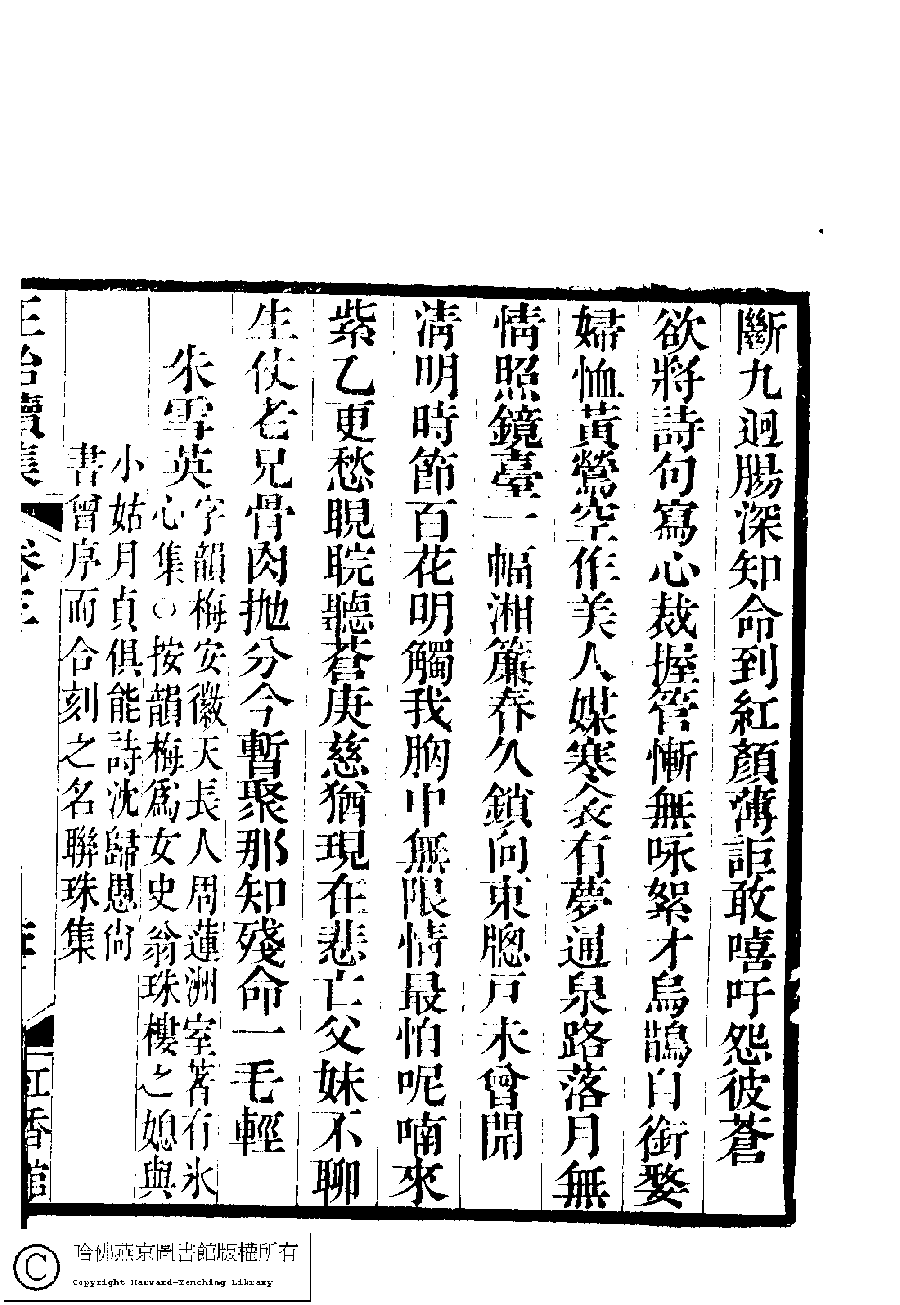 斷九迴腸深知命到紅顏薄詎敢嘻吁怨彼蒼
欲將詩句寫心裁握管慚無咏絮才烏鵲自銜婺
婦恤黃鶯空作美人媒寒衾有夢通泉路落月無
情照鏡臺一幅湘簾春久鎖向東牕戸未曾開
淸明時節百花明觸我胸中無限情最怕呢喃來
紫乙更愁睍睆聽蒼庚慈猶現在悲亡父妹不聊
生仗老兄骨肉拋分今暫聚那知殘命一毛輕
朱雪英
字韻梅安徽天長人周蓮洲室著有氷
心集○按韻梅爲女史翁珠樓之媳與
小姑月貞俱能詩沈歸愚尙
書曾序而合刻之名聯珠集
續集
卷三
紅香館
哈佛燕京圖書館版權所有
Copyright Harvard-Yenching Library